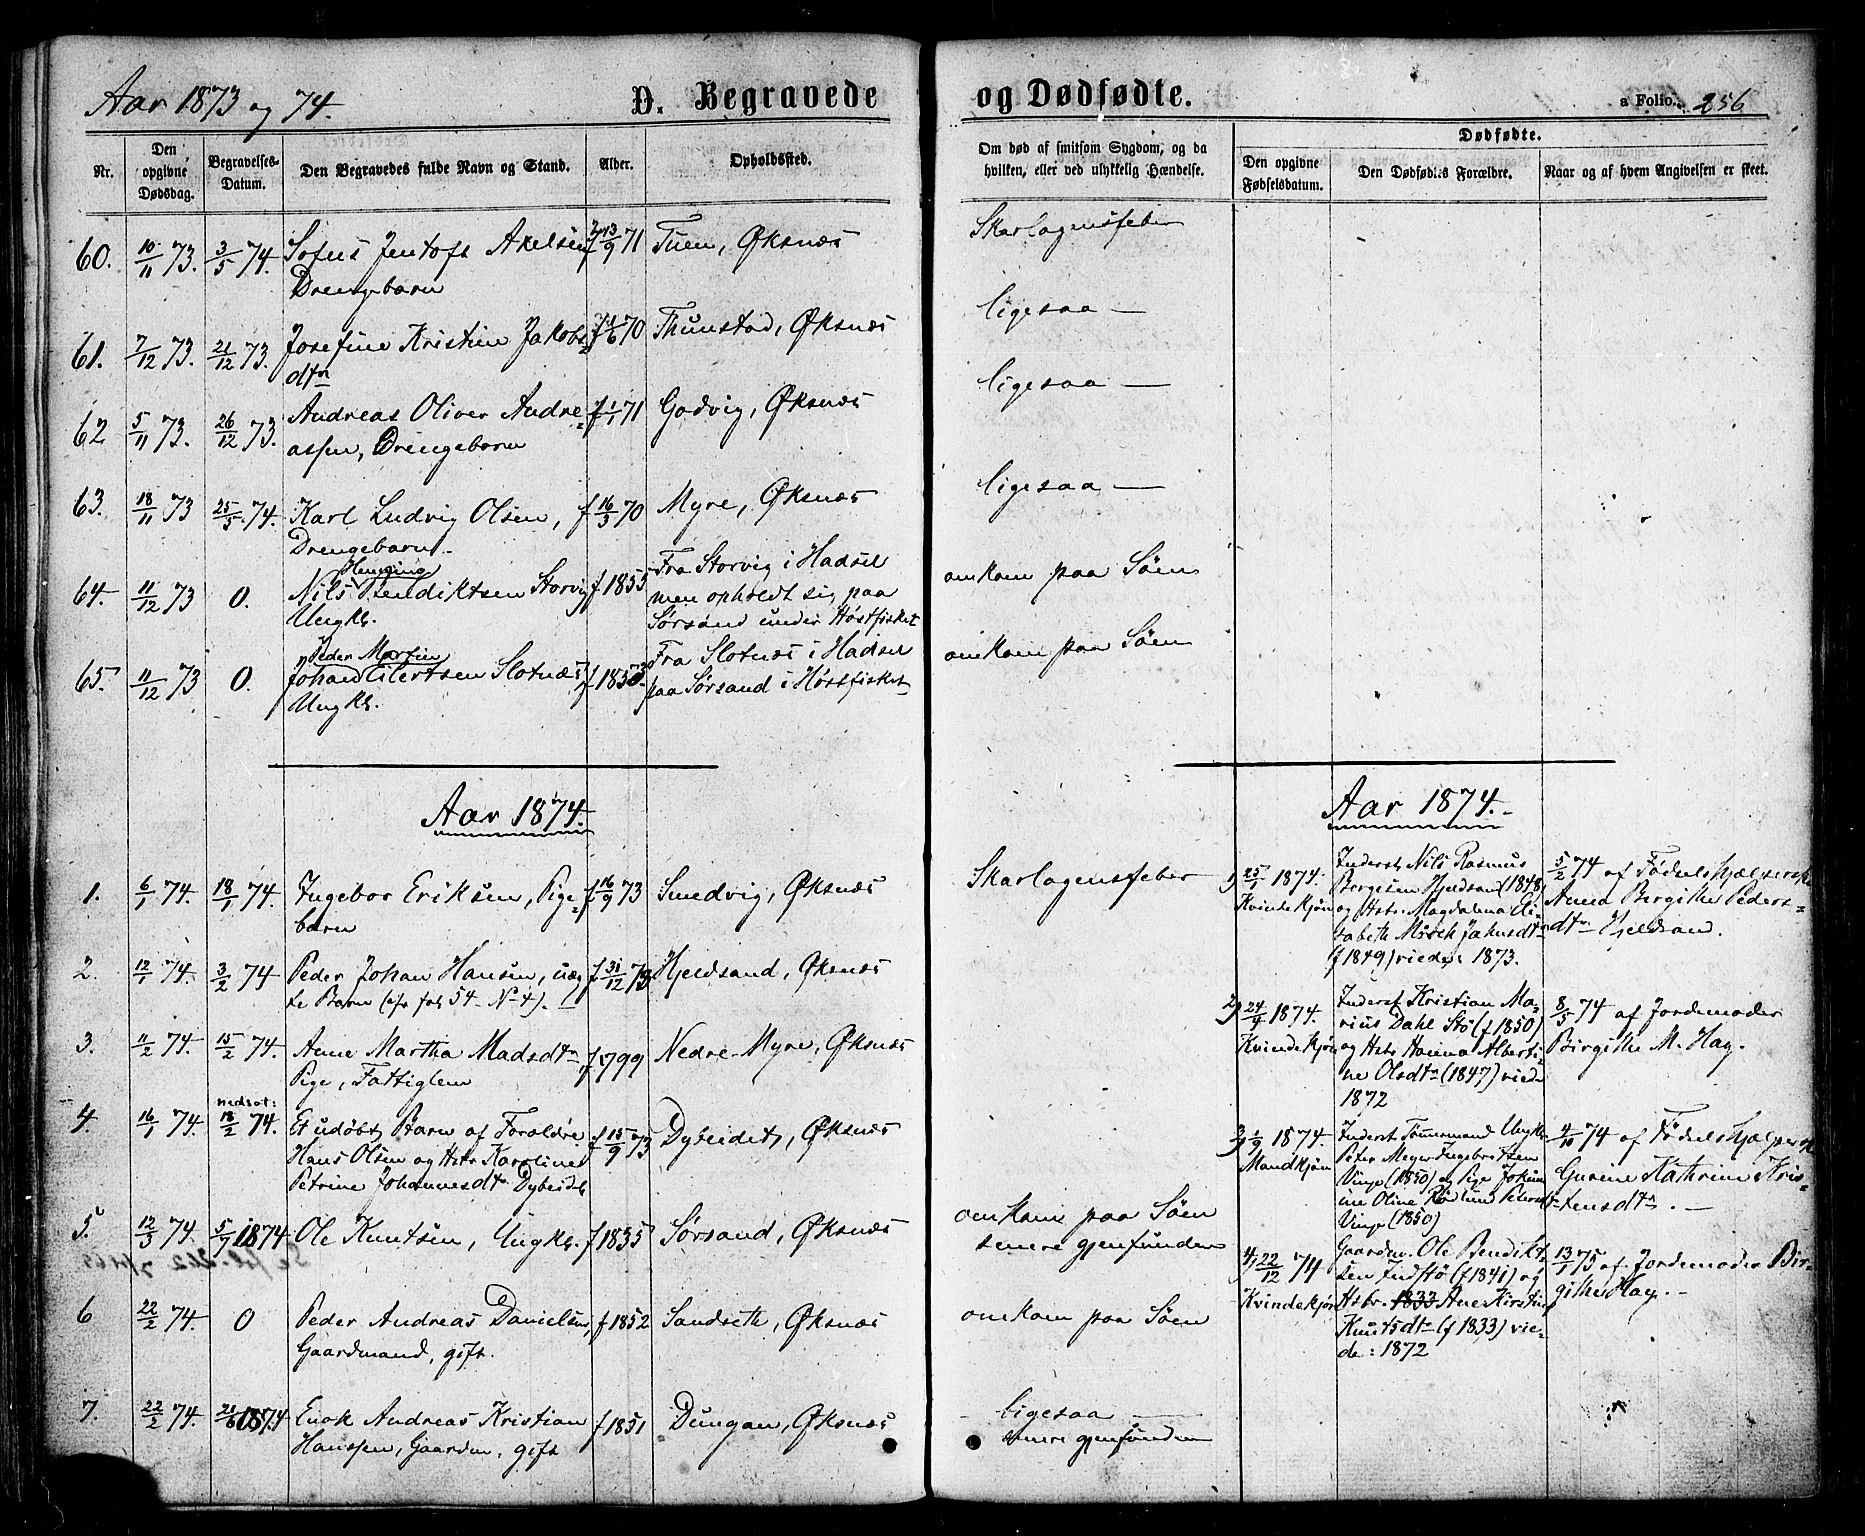 Aar 1873 og 74.
D. Begravede
og Dødfødte.
a Folio. 256
Nr.
Den opgivne Dødsdag.
Begravelses-Datum.
Den Begravedes fulde Navn og Stand.
Alder.
Opholdssted.
Om død af smitsom Sygdom, og da hvilken, eller ved ulykkelig Hændelse.
Dødfødte.
Den opgivne Fødselsdatum.
Den Dødfødtes Forældre.
Naar og af hvem Angivelsen er skeet.
60. 10/11 73. 3/5 74. Sofus Jentoft Axelsen f 13/9 71 Tuen, Øksnæs Skarlagensfeber
Drengebarn
61. 7/12 73. 21/12 73. Josefine Kristine Jakobs= 70 Thunstad, Øksnæs ligesaa —
dtr
62 5/11 73. 26/12 73. Andreas Oliver Andre= f 1/1 71 Godvig, Øksnæs ligesaa —
assen, Drengebarn
63. 18/11 73 25/5 74. Karl Ludvig Olsen, f 16/3 70 Myre, Øksnæs ligesaa —
Drengebarn
Henning
64. 11/12 73 0. Nils Bendiktsen Storvig f 1855 Fra Storvig i Hadsel omkom paa Søen
Ungk. men opholdt sig paa
Sørsand under Høstfisket
Peder Martin
65. 11/12 73 0. Johan Eilertsen Slotnæs f 1853. Fra Slotnæs i Hadsel omkom paa Søen
Ungk. paa Sørsand i Høstfisket
Aar 1874.
Aar 1874.
1. 6/1 74. 18/1 74. Ingebor Eriksen, Pige= f 16/9 73 Smedvig, Øksnæs Skarlagensfeber
barn
2. 12/1 74. 3/2 74 Peder Johan Hansen, uæg f 31/12 73 Hjeldsand, Øksnæs
te Barn (cfr fol 54 No 4). —
3. 11/2 74. 15/2 74. Anne Martha Madsdtr, f 1799 Nedre-Myre, Øksnæs
Pige, Fattiglem
nedsat:
4. 16/1 74. 18/2 74. Et udøbt Barn af Forældre f 15/9 73 Dybeidet, Øksnæs
Hans Olsen og Hstr Karoline
Petrine Johannesdtr Dybeidet
5. 12/3 74. 5/7 1874 Ole Knutsen, Ungk. f 1835 Sørsand, Øksnæs omkom paa Søen
senere gjenfunden
6 22/2 74. 0 Peder Andreas Danielsen, f 1852 Sandseth, Øksnæs omkom paa Søen
Gaardmand, gift.
7. 22/2 74. 21/6 1874 Enok Andreas Kristian f 1851 Dungan, Øksnæs ligesaa —
Hanssen, Gaardm, gift senere gjenfunden
1) 25/1 1874. Inderst Nils Rasmus 5/2 74 af Fødselshjælperske
Kvindekjøn Børgesen Hjeldsand (1848) Anna Birgithe Peders=
og Hstr. Magdalena Eli= dtr Hjeldsand.
sabeth Jakobsdtr
(f 1849) viede: 1873.
2) 24/4 1874. Inderst Kristian Ma= 8/5 74 af Jordemoder
rius Dahl Stø (f 1850)
Kvindekjøn og Hstr Hanna Alberti= Birgithe M. Hay.
ne Olsdtr (1847) vied
1872
3) 1/9 1874. Inderst Tømmermand Ungk. 4/10 74 af Fødselshjælpersk
Mandkjøn Peter Meyer Ingebrigtsen
Vinge (1850) og Pige Jokum Gurine Kathrine Kris=
ine Oline Pedersd tensdtr. —
Vinge (1850)
4) 22/12 74 Gaardm. Ole Bendikt= 13/1 75 af Jordemoder Bir=
sen Indstø (f 1841) og githe Hay. —
Kvindekjøn Hstr. 1833 Ane Kirstine
Knutsdtr (f 1833) vie=
de: 1872